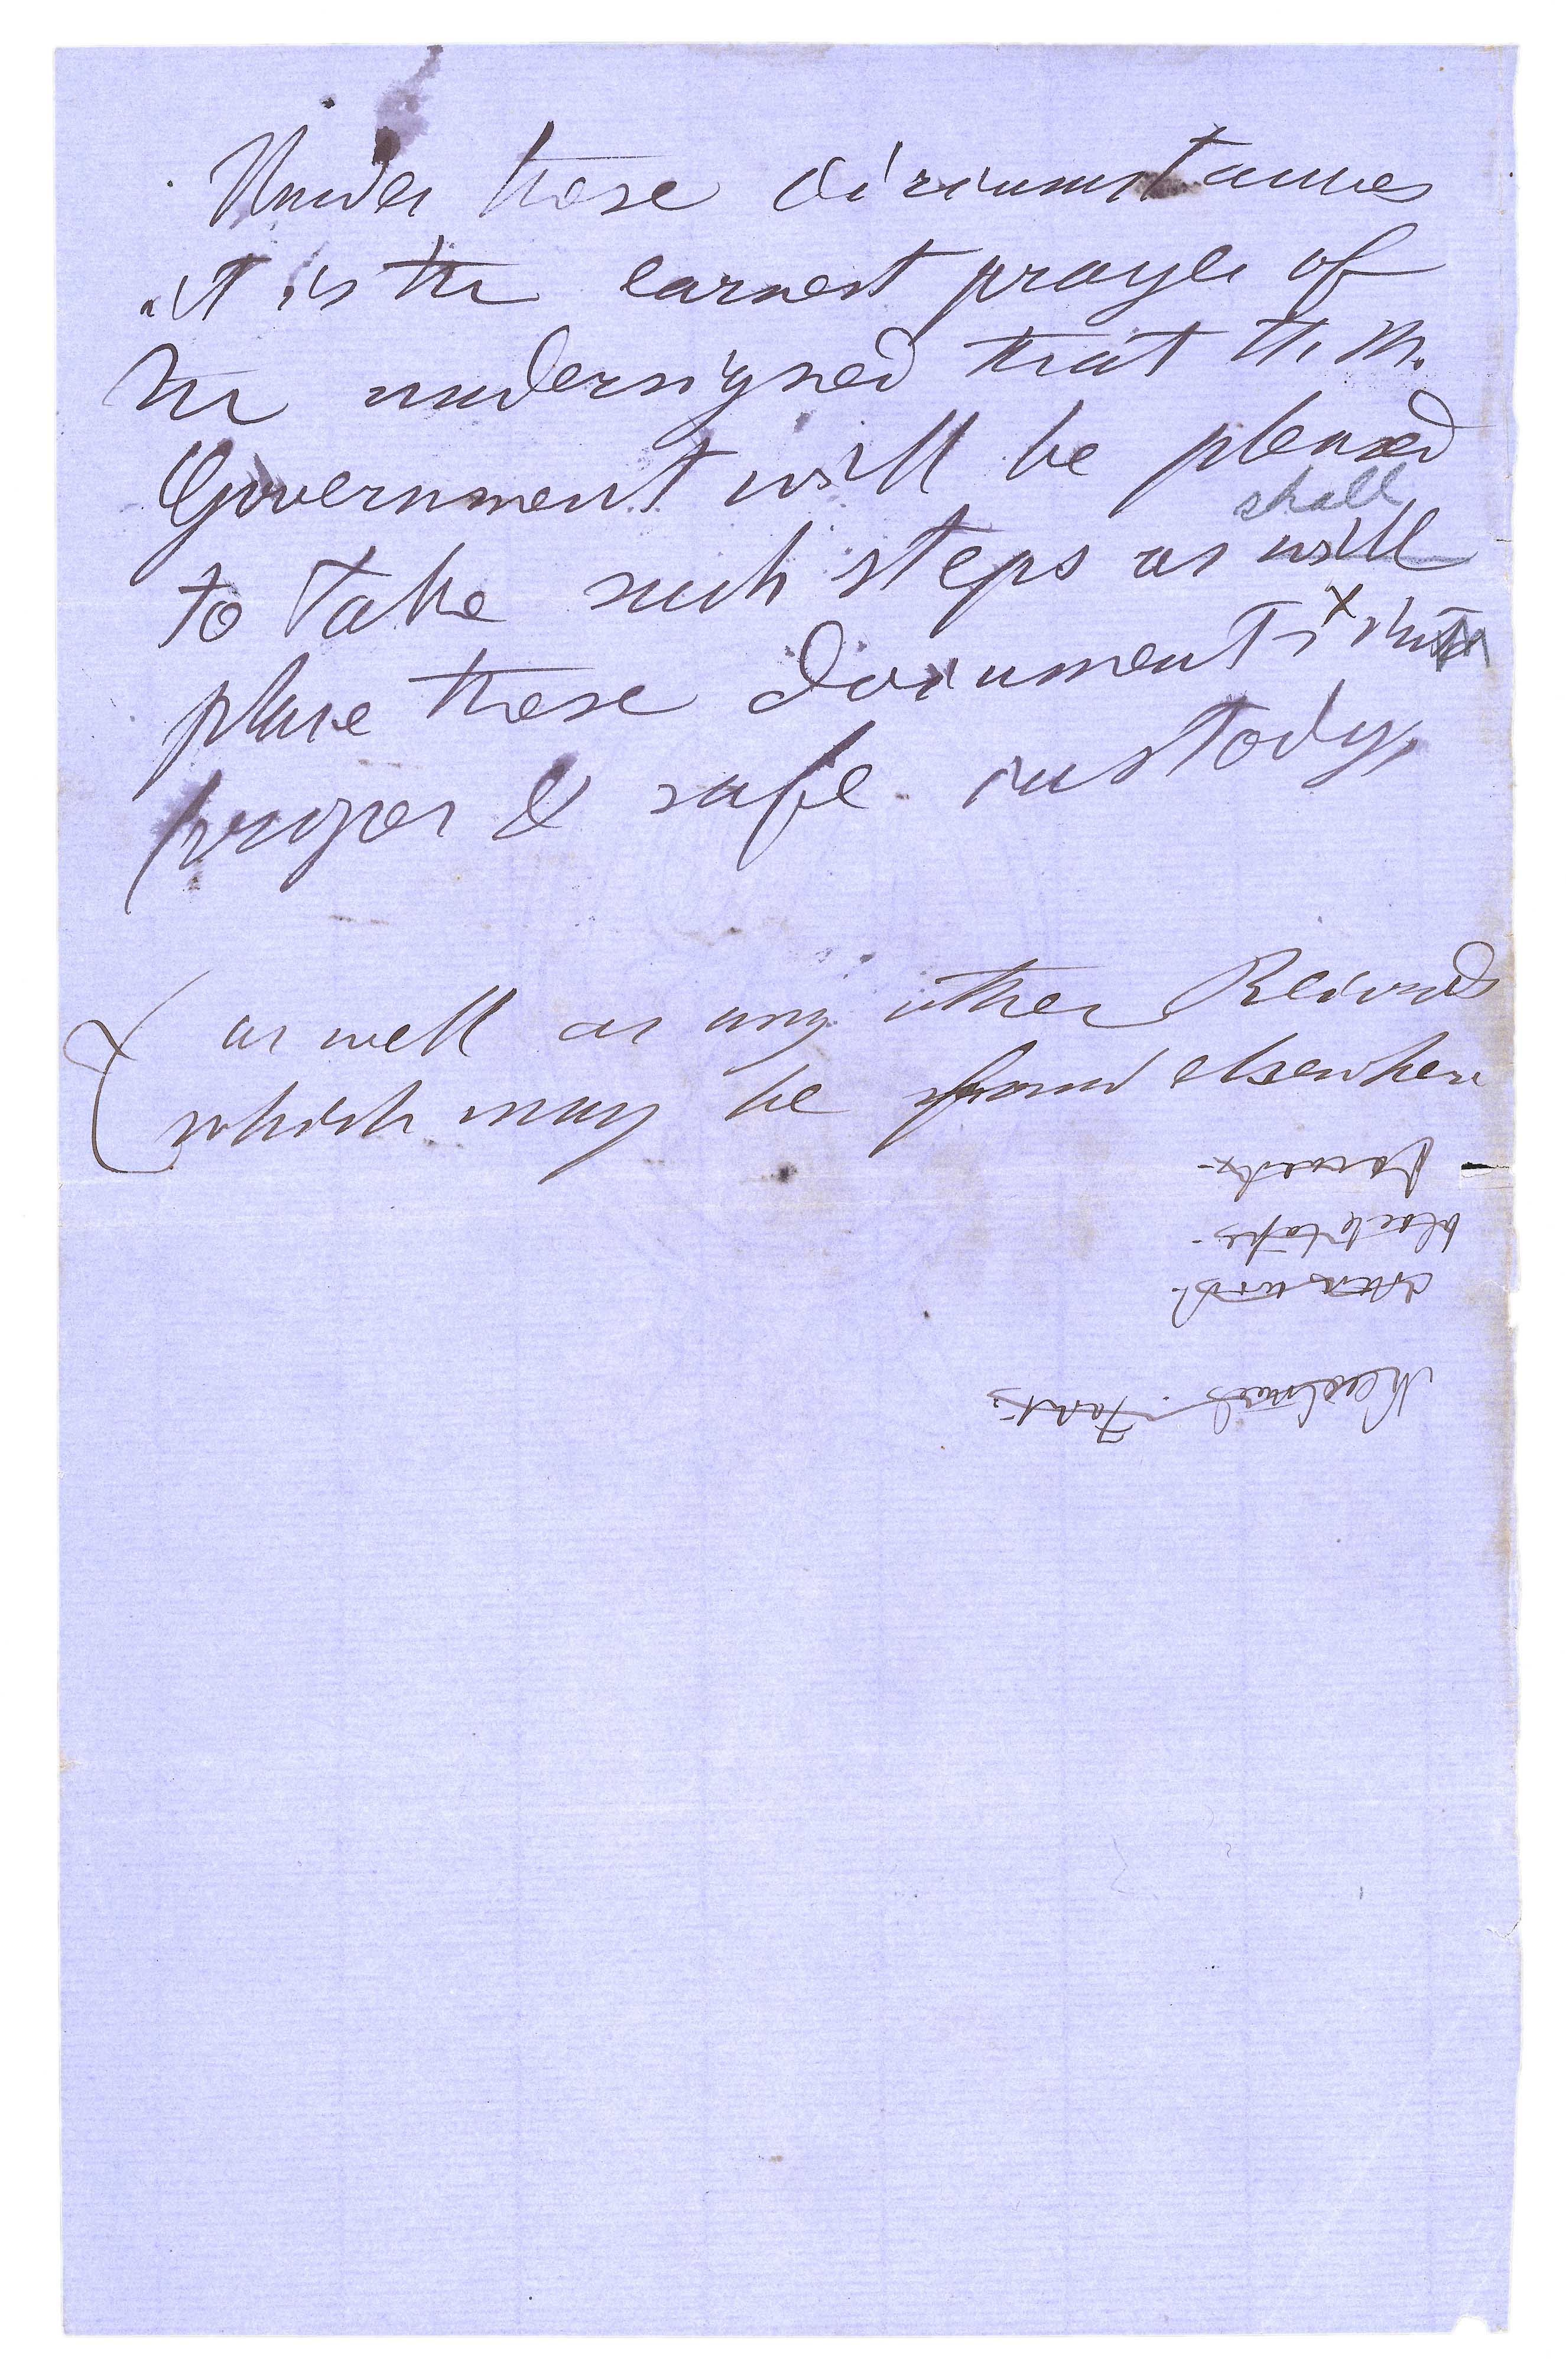 Under these circumstances
it is the earnest prayer of
the undersigned that H. M.
Government will be pleased
shall
to take such steps as will
place these documents x into
proper & safe custody,
as well as any other Records
which may be found elsewhere
black tape